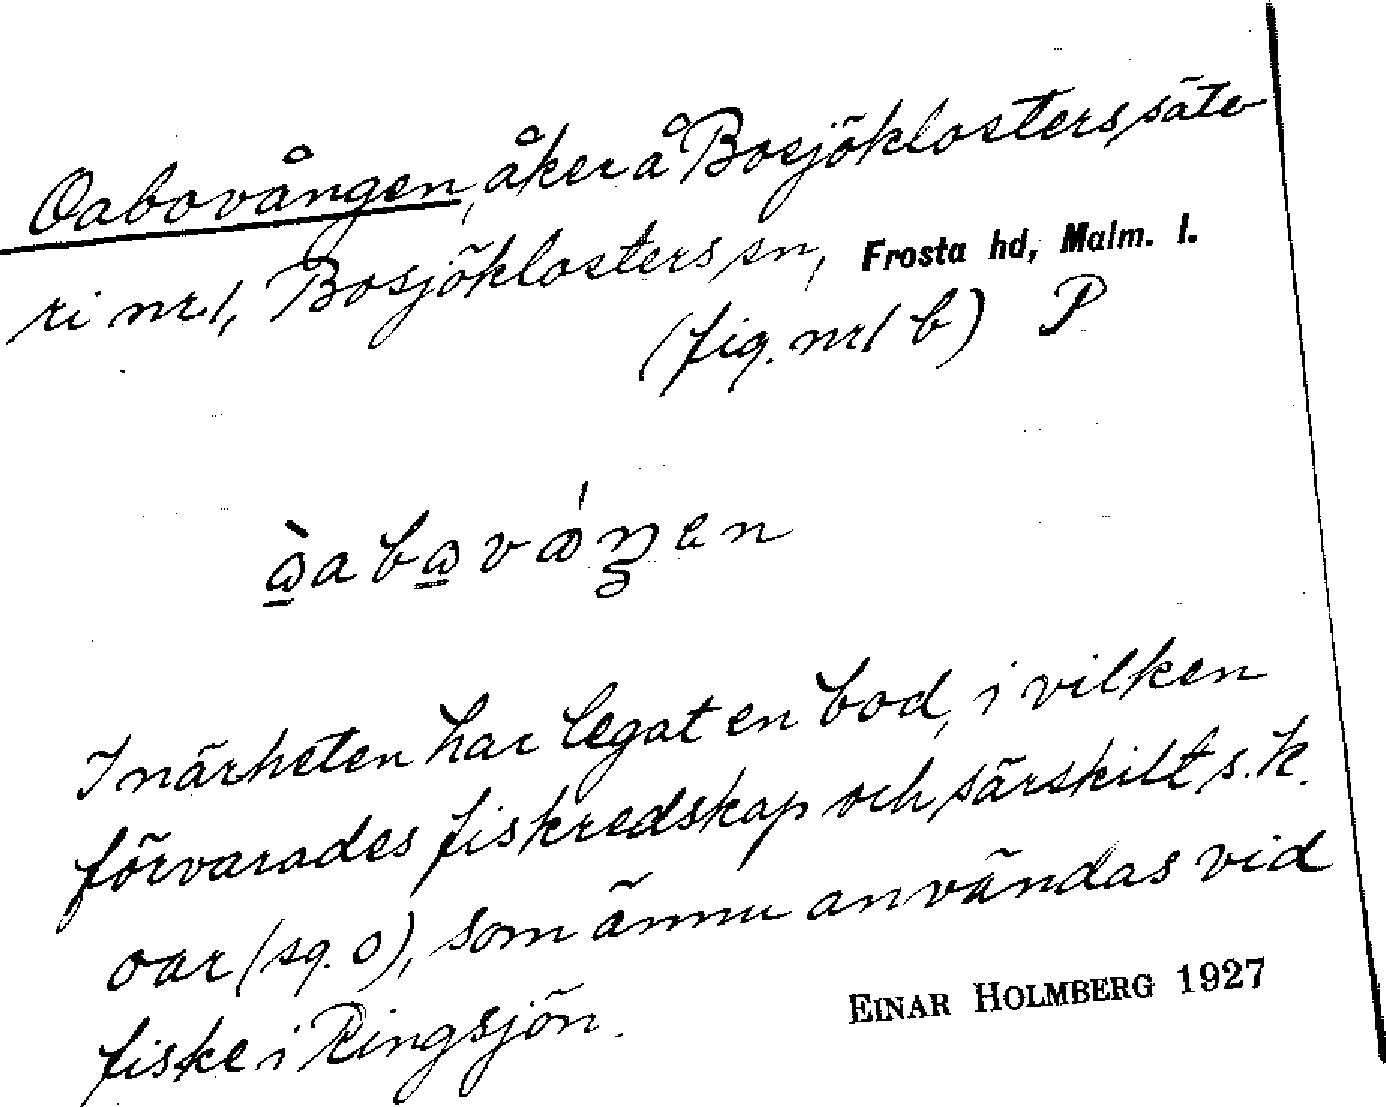 Oabovången, åker å Bosjöklosters säte-
ri nr 1, Bosjöklosters sn, Frosta hd, Malm. l.
(fig. nr 1 b) P
I närheten har legat en bod, i vilken
förvarades fiskredskap och särskilt s.k.
oar (sg. o), som ännu användas vid
fiske i Ringsjön.
EINAR HOLMBERG 1927